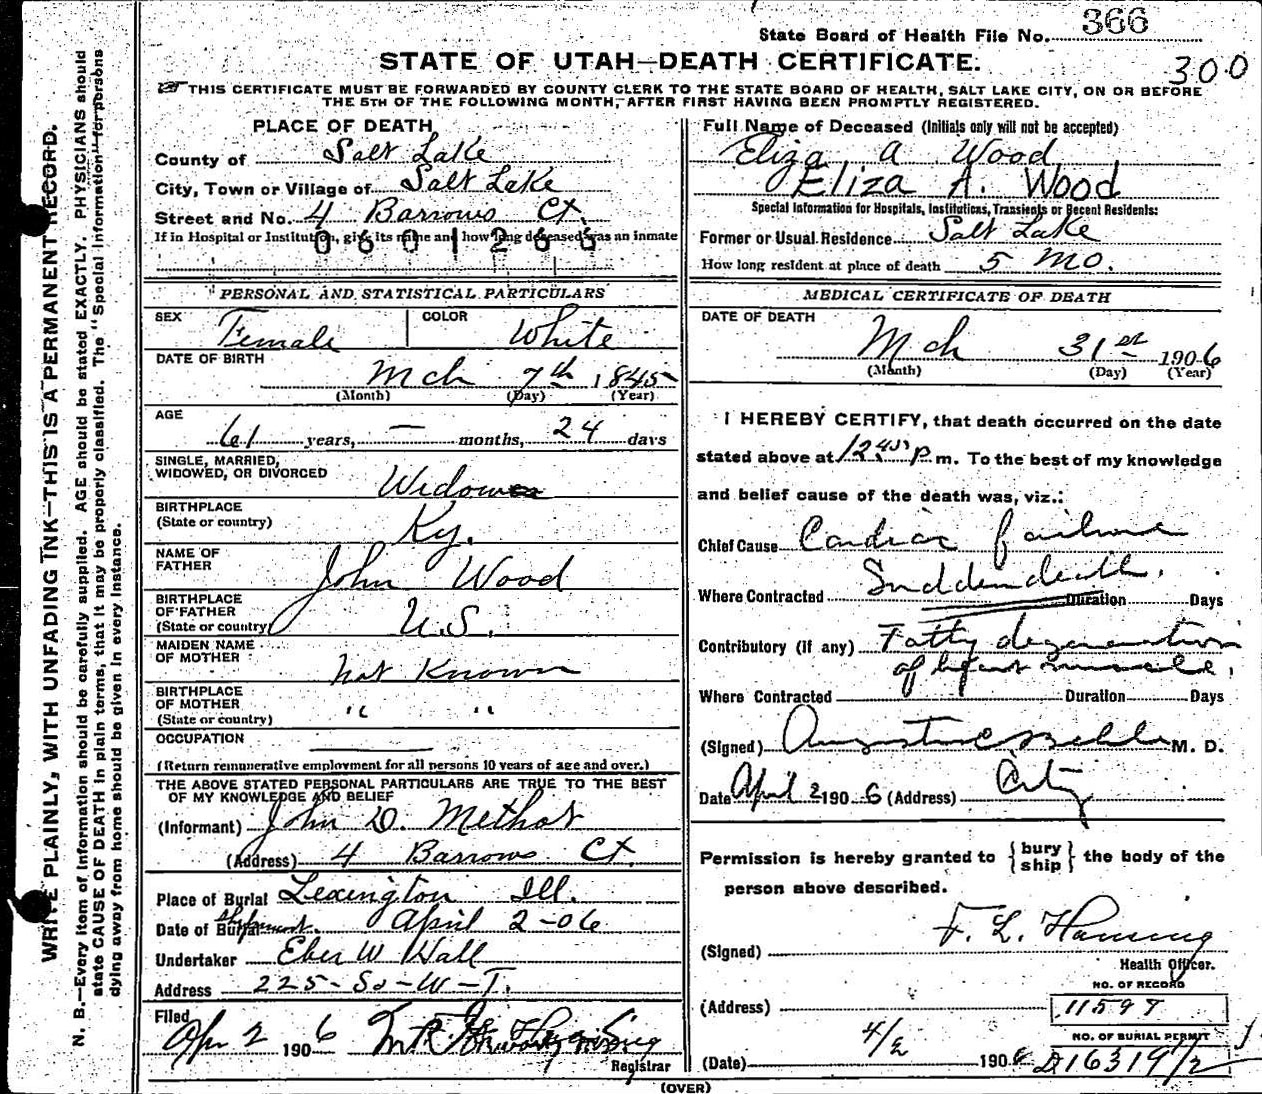 State Board of Health File No. 366
STATE OF UTAH—DEATH CERTIFICATE.
300
THIS CERTIFICATE MUST BE FORWARDED BY COUNTY CLERK TO THE STATE BOARD OF HEALTH, SALT LAKE CITY, ON OR BEFORE
THE 5TH OF THE FOLLOWING MONTH, AFTER FIRST HAVING BEEN PROMPTLY REGISTERED.
WRITE PLAINLY, WITH UNFADING INK—THIS IS A PERMANENT RECORD.
N. B.—Every item of information should be carefully supplied. AGE should be stated EXACTLY. PHYSICIANS should
state CAUSE OF DEATH in plain terms, that it may be properly classified. The "Special Information" for persons
dying away from home should be given in every instance.
PLACE OF DEATH
County of Salt Lake
City, Town or Village of Salt Lake
Street and No. 4 Barrows Ct.
If in Hospital or Institution, give its name and how long deceased was an inmate
0601266
PERSONAL AND STATISTICAL PARTICULARS
SEX Female COLOR White
DATE OF BIRTH
Mch 7th 1845
(Month) (Day) (Year)
AGE
61 years, — months, 24 days
SINGLE, MARRIED,
WIDOWED, OR DIVORCED Widow
BIRTHPLACE
(State or country) Ky.
NAME OF
FATHER John Wood
BIRTHPLACE
OF FATHER
(State or country) U.S.
MAIDEN NAME
OF MOTHER Not Known
BIRTHPLACE
OF MOTHER
(State or country) " "
OCCUPATION
(Return remunerative employment for all persons 10 years of age and over.)
THE ABOVE STATED PERSONAL PARTICULARS ARE TRUE TO THE BEST
OF MY KNOWLEDGE AND BELIEF
(Informant) John D. Methot
(Address) 4 Barrows Ct.
Place of Burial Lexington Ill.
Date of Burial shipment. April 2-06
Undertaker Eber W Hall
Address 225-So-W-T.
Filed
Apr 2 1906
Registrar
Full Name of Deceased (Initials only will not be accepted)
Eliza A Wood
Eliza A. Wood
Special Information for Hospitals, Institutions, Transients or Recent Residents:
Former or Usual Residence Salt Lake
How long resident at place of death 5 Mo.
MEDICAL CERTIFICATE OF DEATH
DATE OF DEATH
Mch 31st 1906
(Month) (Day) (Year)
I HEREBY CERTIFY, that death occurred on the date
stated above at 12 45 P.m. To the best of my knowledge
and belief cause of the death was, viz.:
Chief Cause Cardiac failure
Sudden death.
Where Contracted Duration Days
Contributory (if any) Fatty degeneration
of heart muscle.
Where Contracted Duration Days
(Signed) M. D.
Date April 2 1906 (Address) City
Permission is hereby granted to {bury ship} the body of the
person above described.
(Signed) F. L. Hansing
Health Officer.
NO. OF RECORD
(Address) 11597
NO. OF BURIAL PERMIT
(Date) 4/2 1906 D16319 1/2
(OVER)